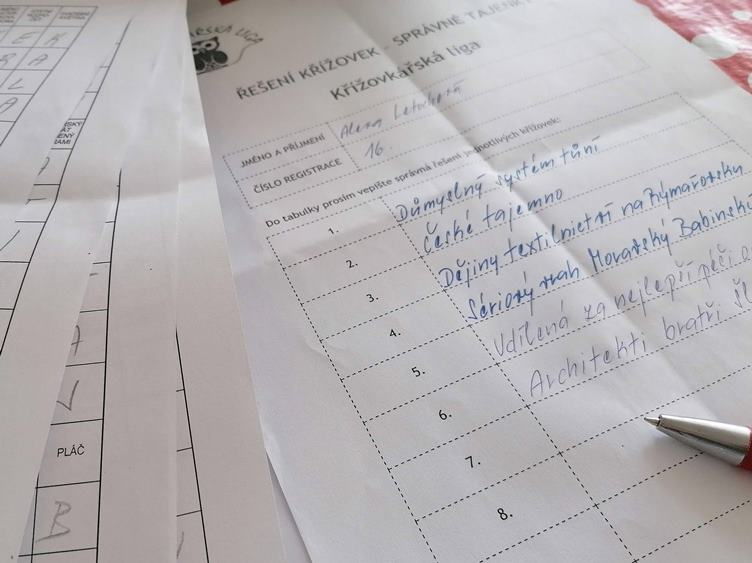 ŘEŠENÍ KŘÍŽOVEK - SPRÁVNÉ TAJENK
Křížovkářská liga
JMÉNO A PŘÍJMENÍ
ČÍSLO REGISTRACE 16.
Do tabulky prosím vepište správná řešení jednotlivých křížovek:
1. Důmyslný systém tůní
2. České tajemno
3. Dějiny textilnictví na Rýmařovsku
4. Sériový vrah Moravský Babinsk
5. Vdílená za nejlepší péči o
6. Architekti bratři
7.
8.
PLÁČ
B